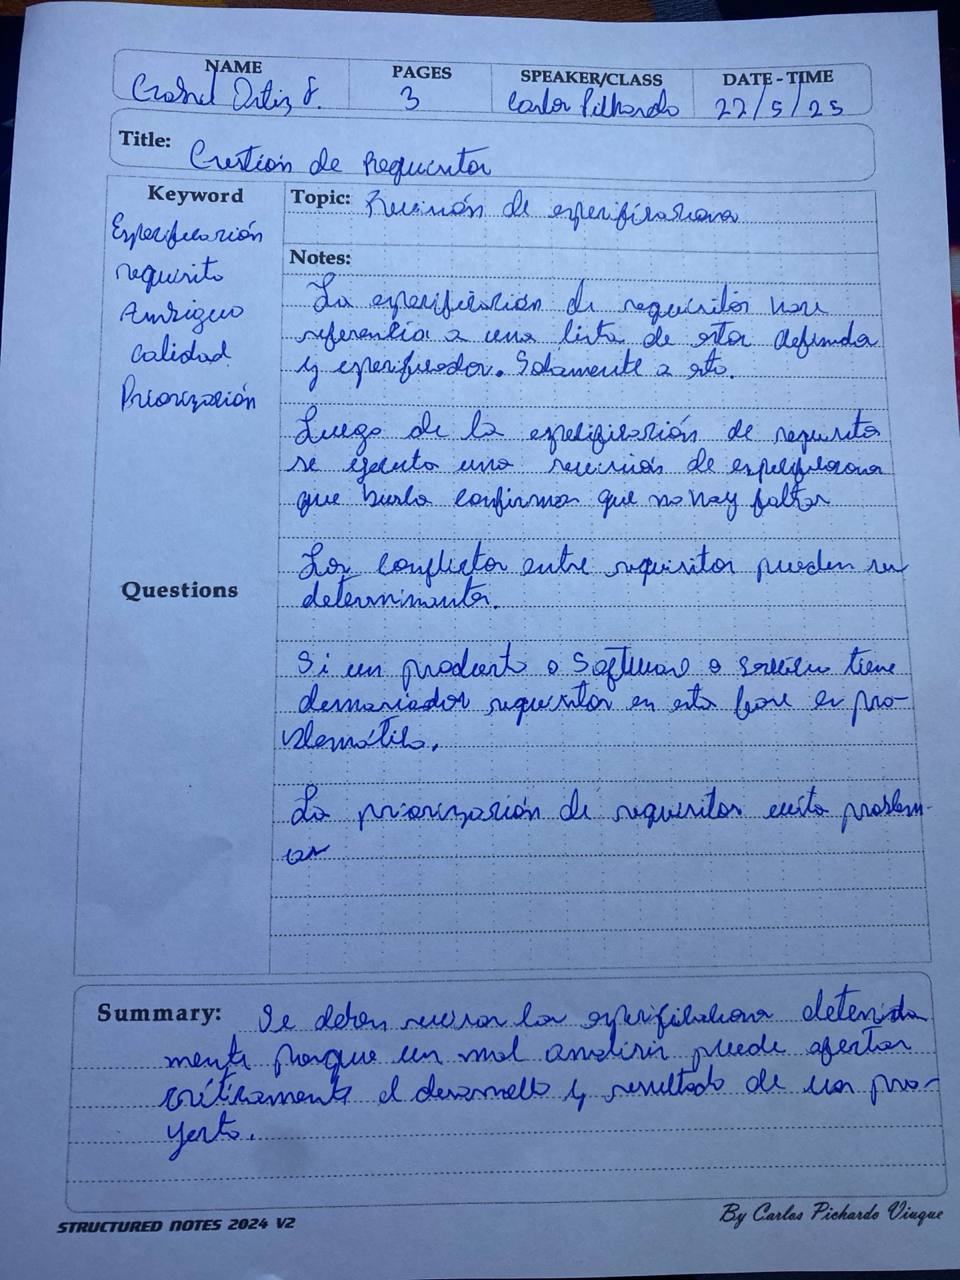 NAME PAGES SPEAKER/CLASS DATE-TIME
Ortiz 3 Carlos Pichardo 22/5/25
Title: Gestión de Requisitos
Keyword
Especificación
requisito
Ambiguo
Calidad
Priorización
Questions
Topic: Revisión de especificaciones
Notes:
La especificación de requisitos hace
referencia a una lista de estos definidos
y especificados. Solamente a esto.
Luego de la especificación de requisitos
se ejecuta una revisión de especificaciones
que busca confirmar que no hay faltas
Los conflictos entre requisitos pueden ser
Si un producto o Software o servicio tiene
demasiados requisitos en esta fase es pro-
blemático.
La priorización de requisitos evita problem-
as
Summary: Se deben revisar las especificaciones detenida
mente porque un mal análisis puede afectar
críticamente el desarrollo y resultado de un pro-
yecto.
STRUCTURED NOTES 2024 V2
By Carlos Pichardo Viuque